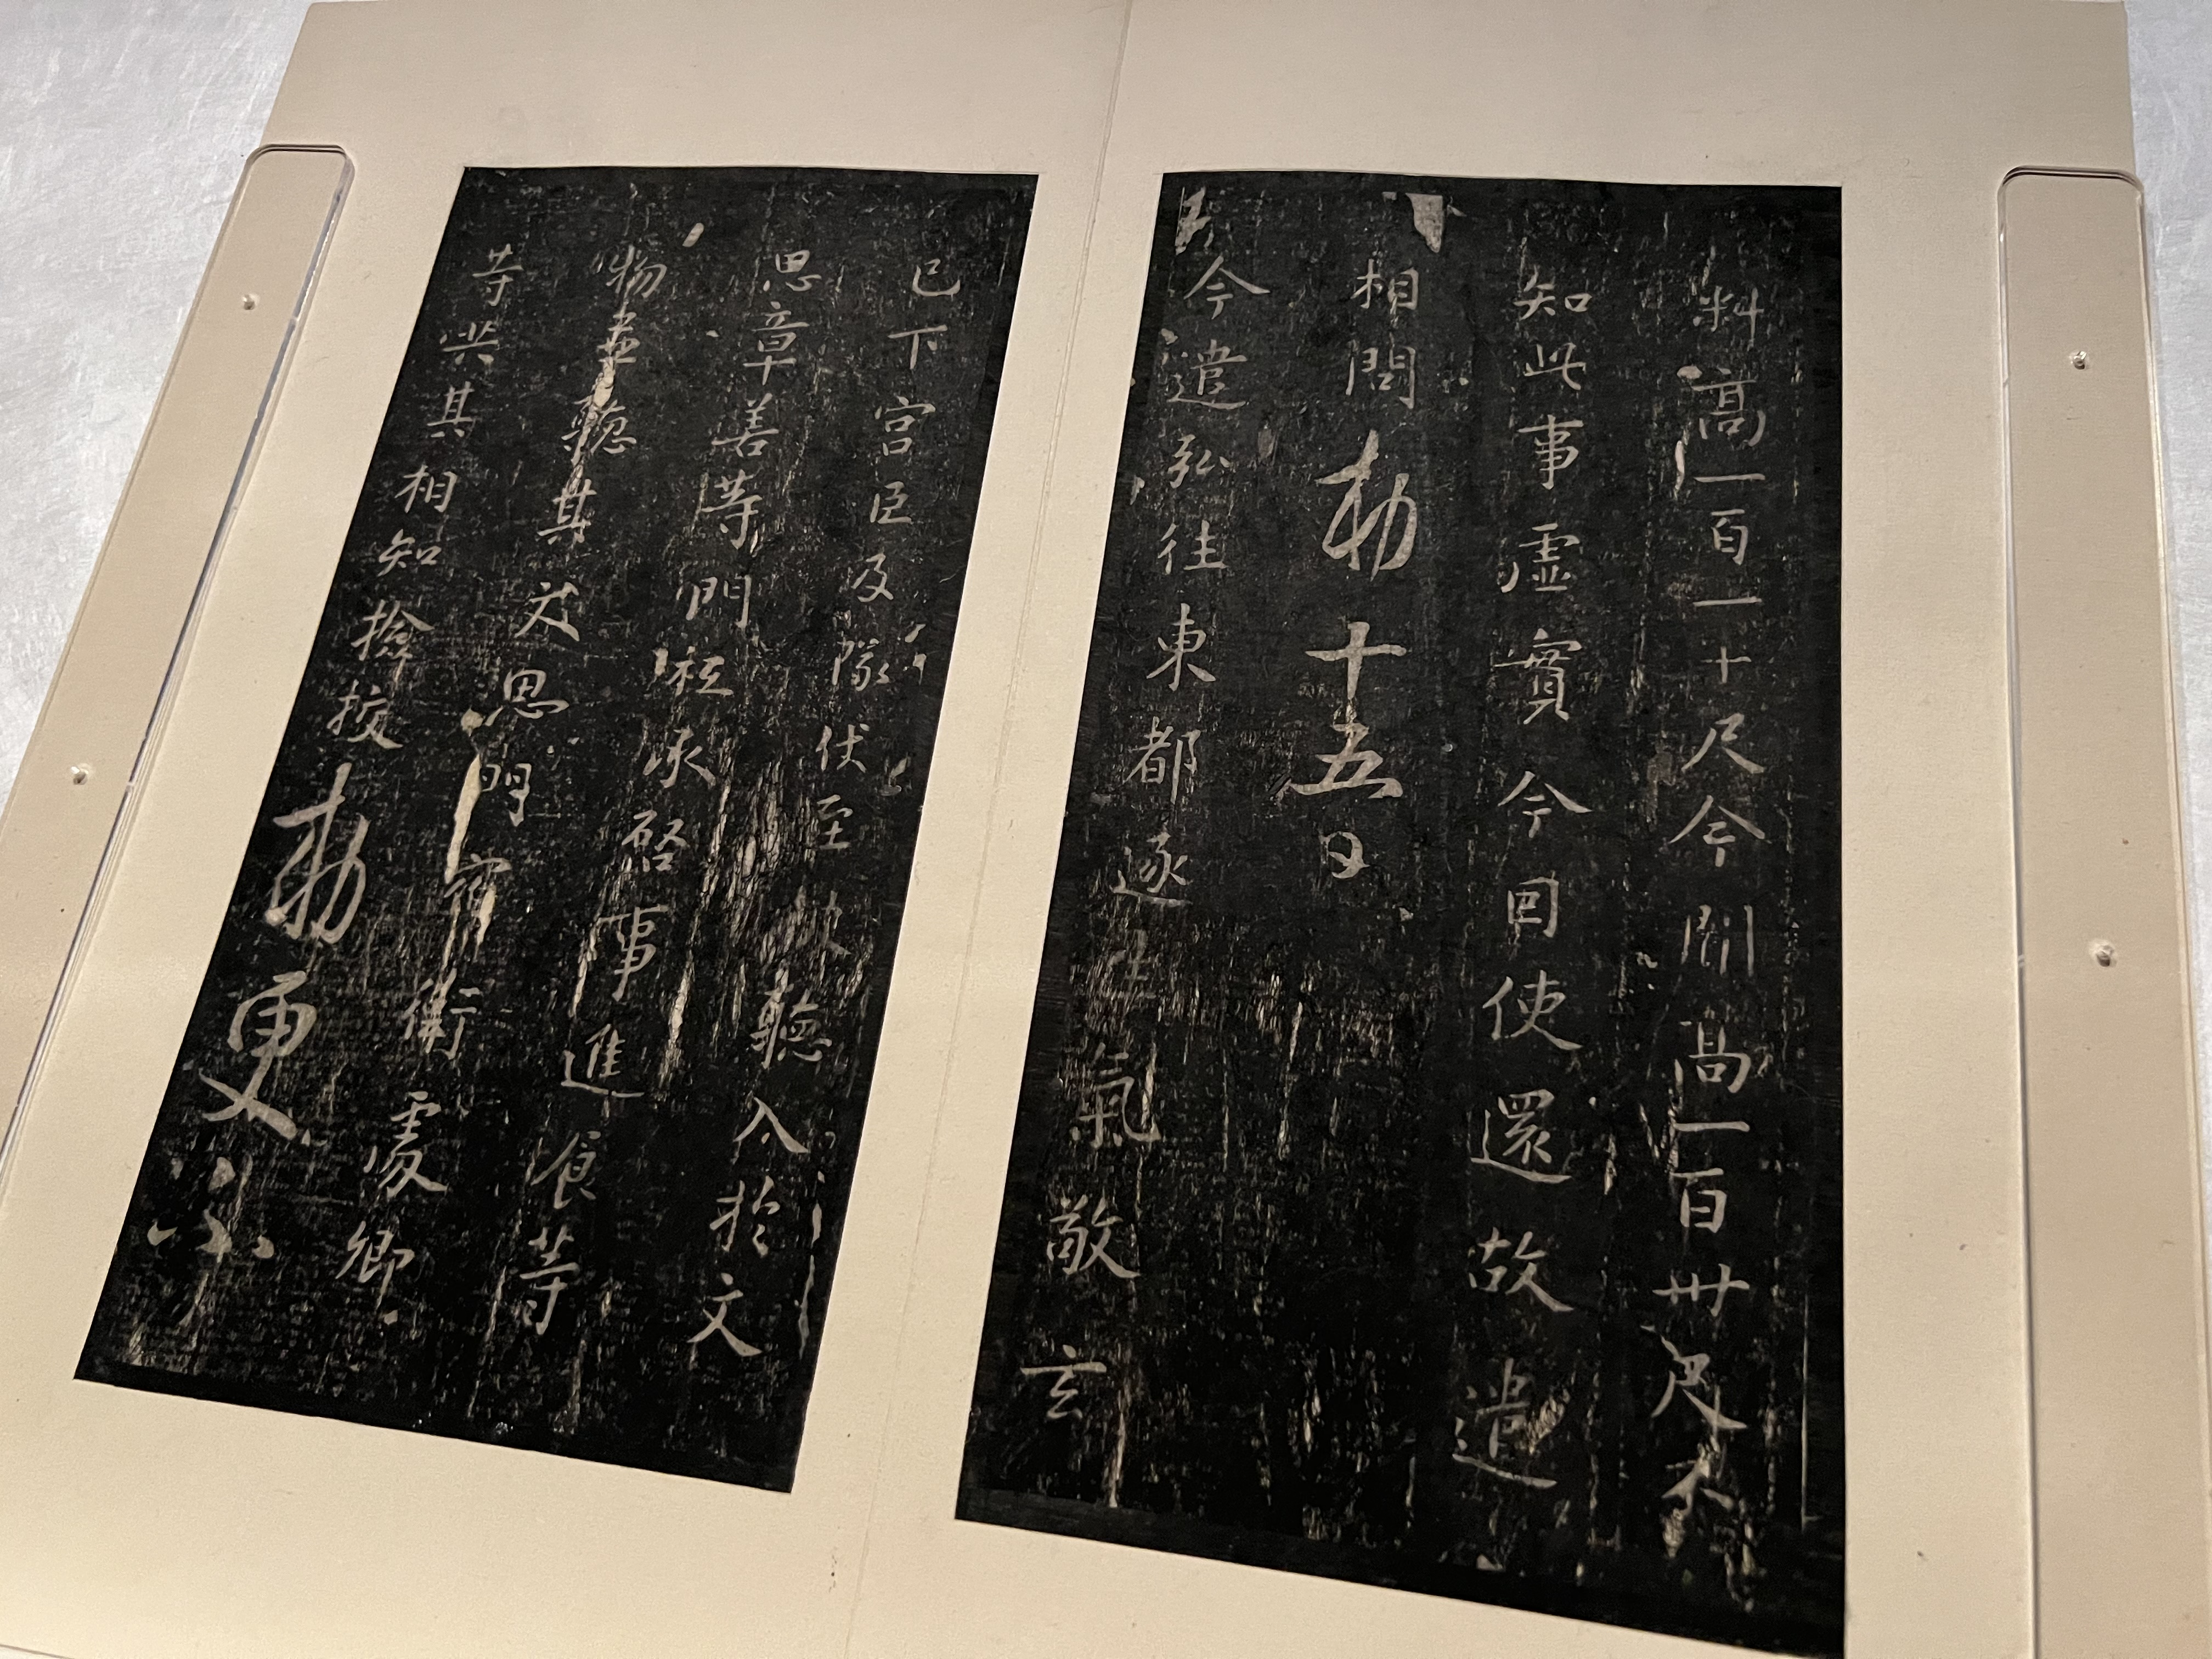 料高一百一十尺今聞高一百卅尺不
知此事虛實今因使還故遣
相問勅十五日
今遣弘往東都逐生氣敬玄
已下宮臣及隊仗至欲聽入於文
思章善等門祗承啓事進食等
物並聽其文思門宿衛處卿
等共其相知撿挍勅更不